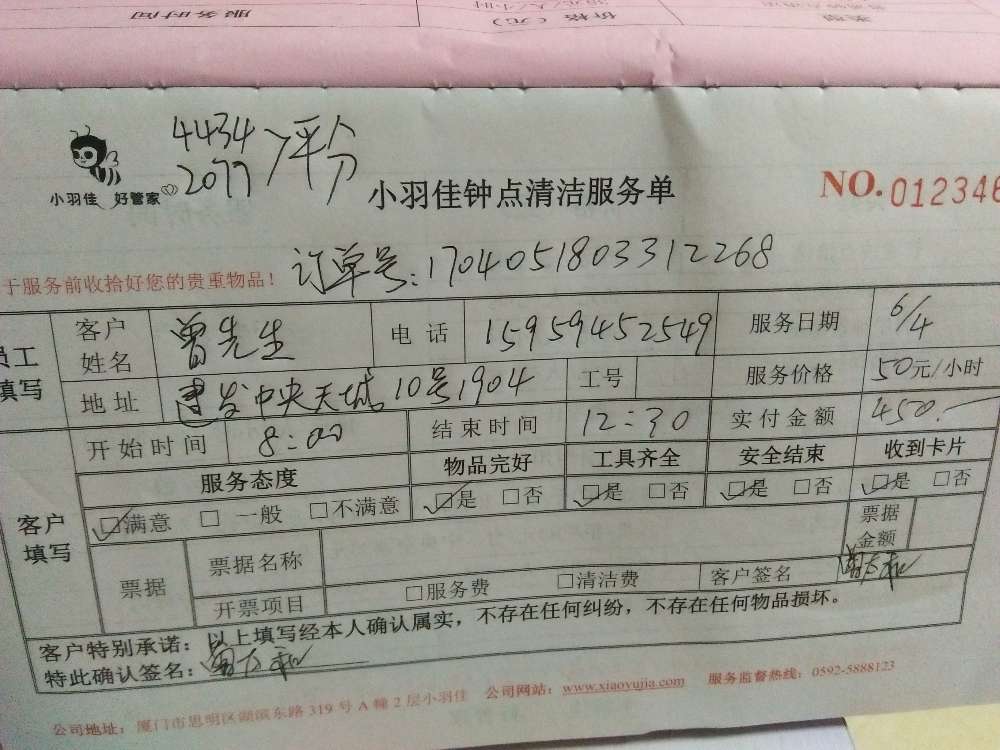 服务时间 价格（元） 类别
4434
2077 评分
小羽佳 好管家
小羽佳钟点清洁服务单
NO. 012346
于服务前收拾好您的贵重物品！
订单号：1704051803312268
员工填写
客户姓名 曾先生 电话 15959452549 服务日期 6/4
地址 建发中央天城10号1904 工号 服务价格 50元/小时
开始时间 8:00 结束时间 12:30 实付金额 450.—
客户填写
服务态度 物品完好 工具齐全 安全结束 收到卡片
☑满意 □一般 □不满意 ☑是 □否 ☑是 □否 ☑是 □否 ☑是 □否
票据 票据名称 票据金额
开票项目 □服务费 □清洁费 客户签名
客户特别承诺：以上填写经本人确认属实，不存在任何纠纷，不存在任何物品损坏。
特此确认签名：
公司地址：厦门市思明区湖滨东路319号A幢2层小羽佳 公司网站：www.xiaoyujia.com 服务监督热线：0592-5888123